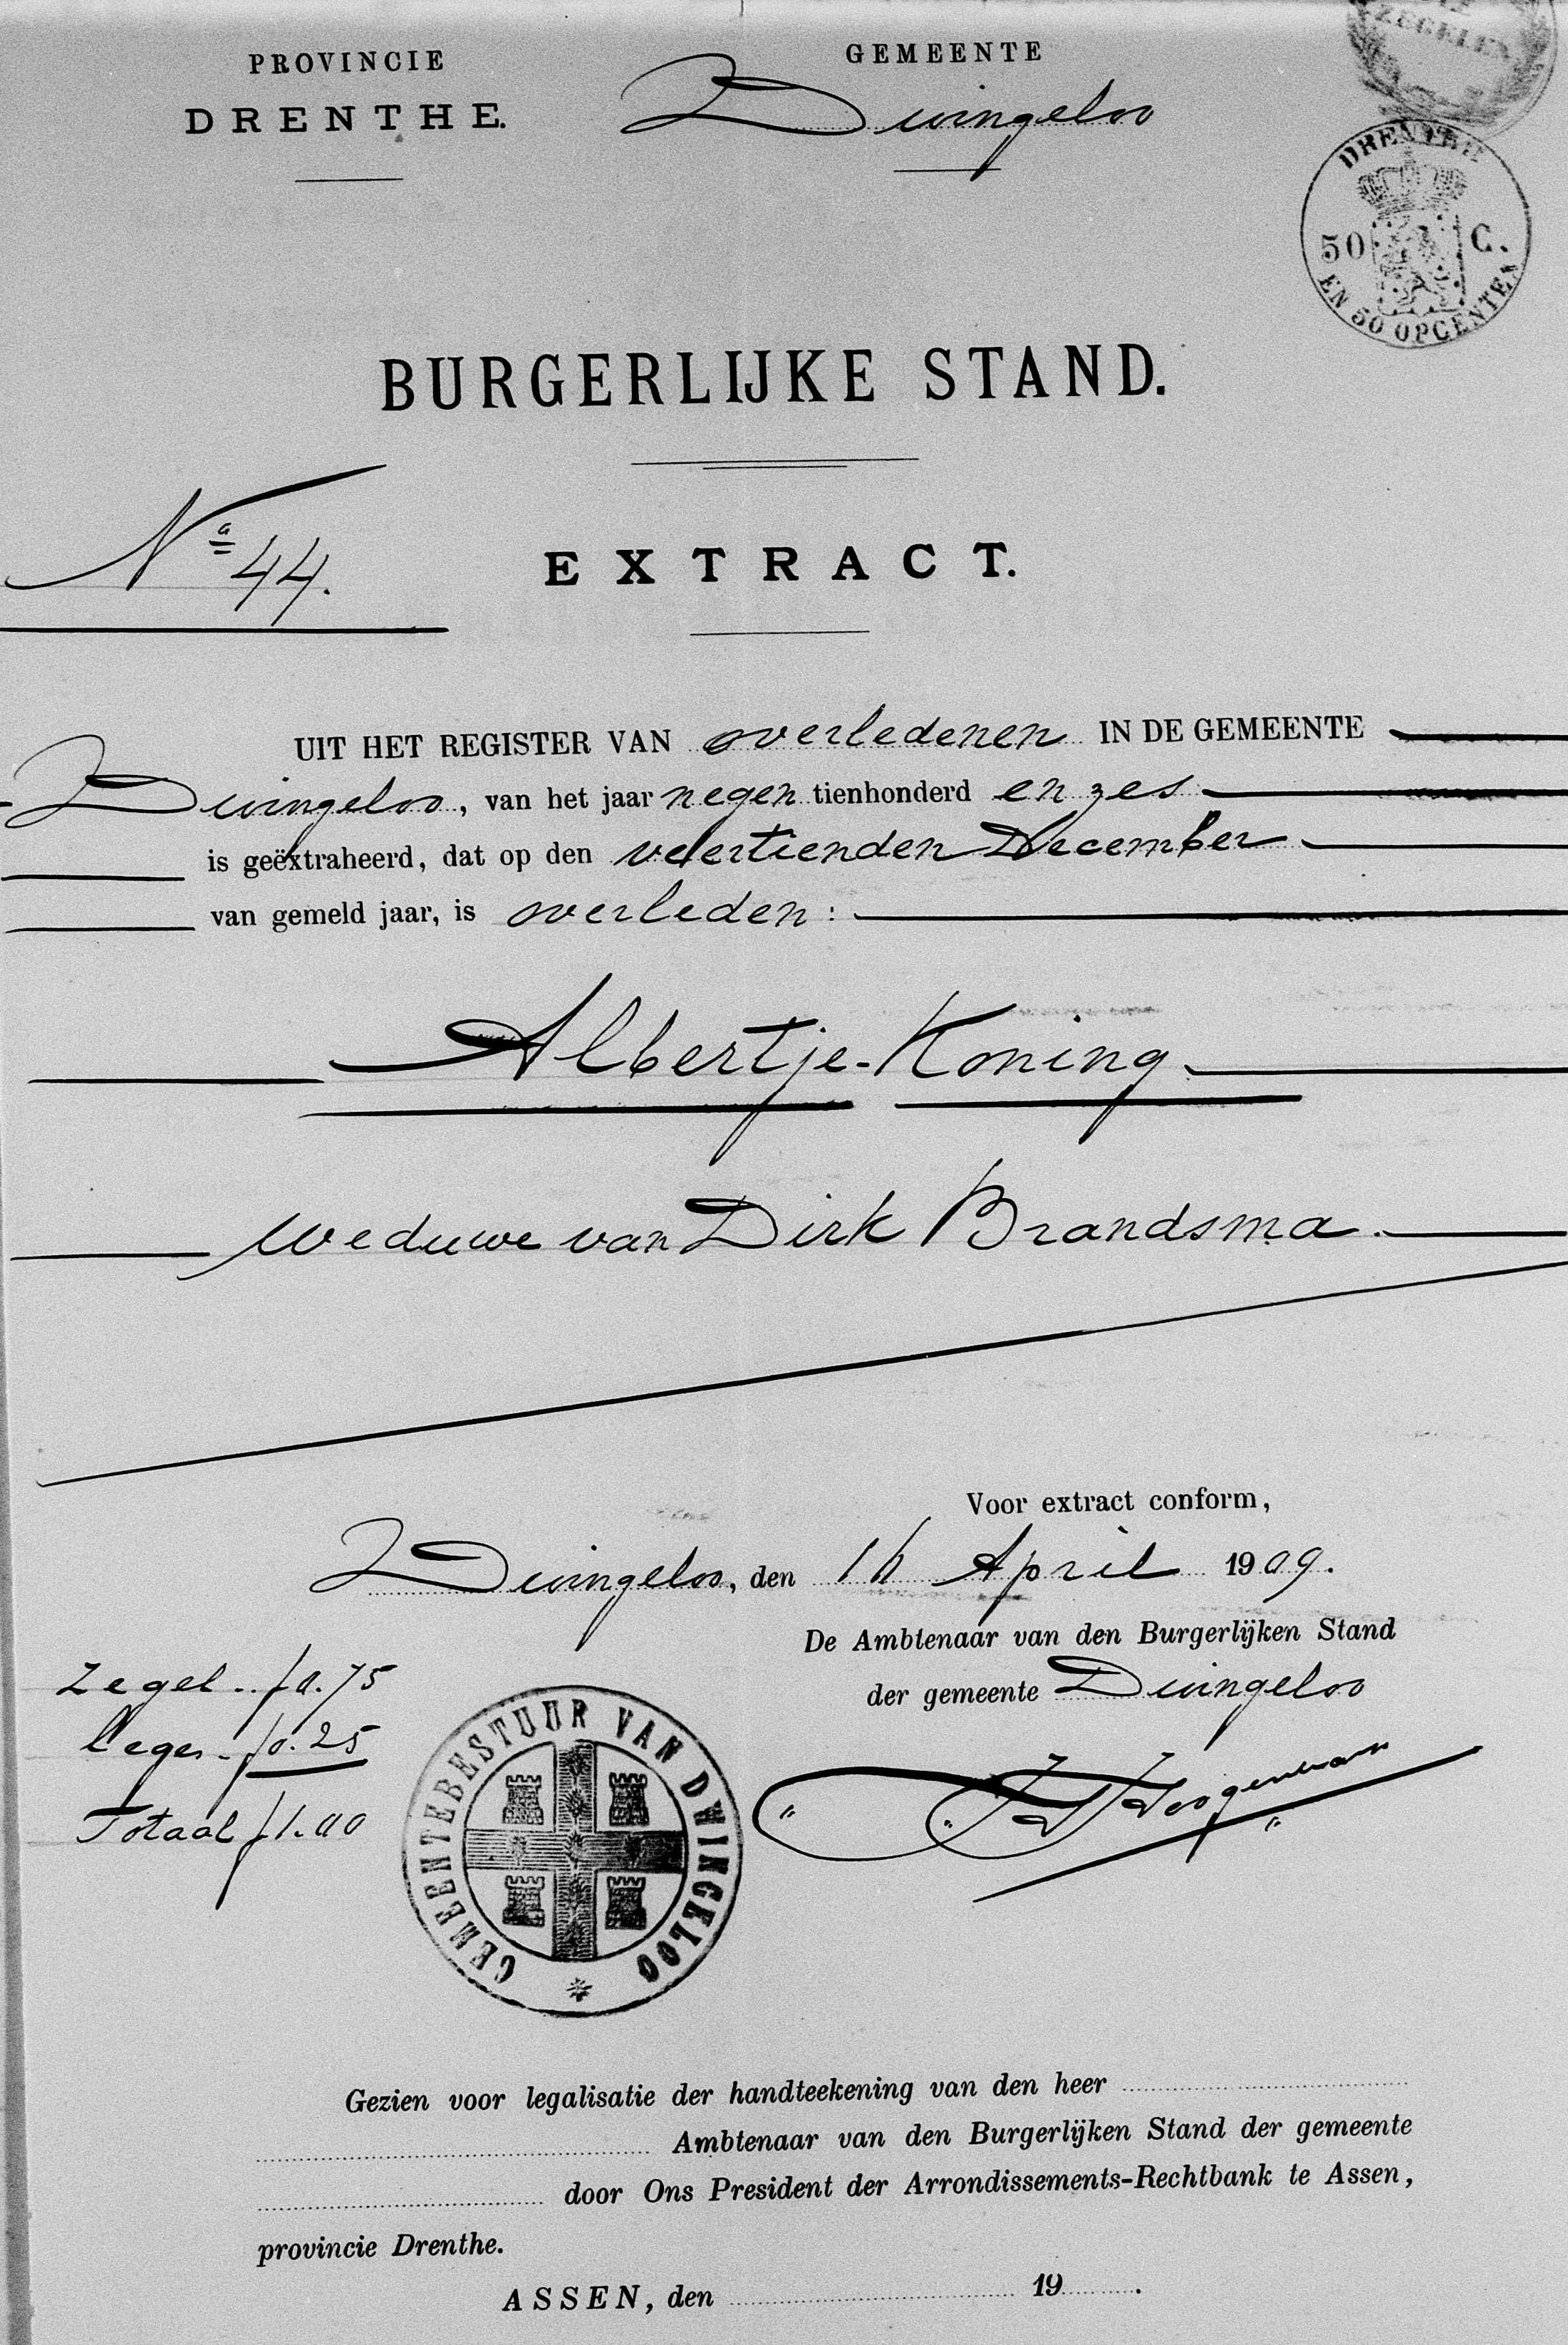 PROVINCIE
DRENTHE.
GEMEENTE
Dwingeloo
ZEGELEN
DRENTHE
50 C.
EN 50 OPCENTEN
BURGERLIJKE STAND.
Na 44.
EXTRACT.
UIT HET REGISTER VAN overledenen IN DE GEMEENTE
Dwingeloo, van het jaar negen tienhonderd en zes
is geëxtraheerd, dat op den veertienden December
van gemeld jaar, is overleden:
Albertje Koning
weduwe van Dirk Brandsma.
Voor extract conform,
Dwingeloo, den April 1909.
De Ambtenaar van den Burgerlijken Stand
der gemeente Dwingeloo
Zegel .. f 0.75
Leges - f 0.25
Totaal f 1.00
GEMEENTEBESTUUR VAN DWINGELOO
Gezien voor legalisatie der handteekening van den heer
Ambtenaar van den Burgerlijken Stand der gemeente
door Ons President der Arrondissements-Rechtbank te Assen,
provincie Drenthe.
ASSEN, den 19 .